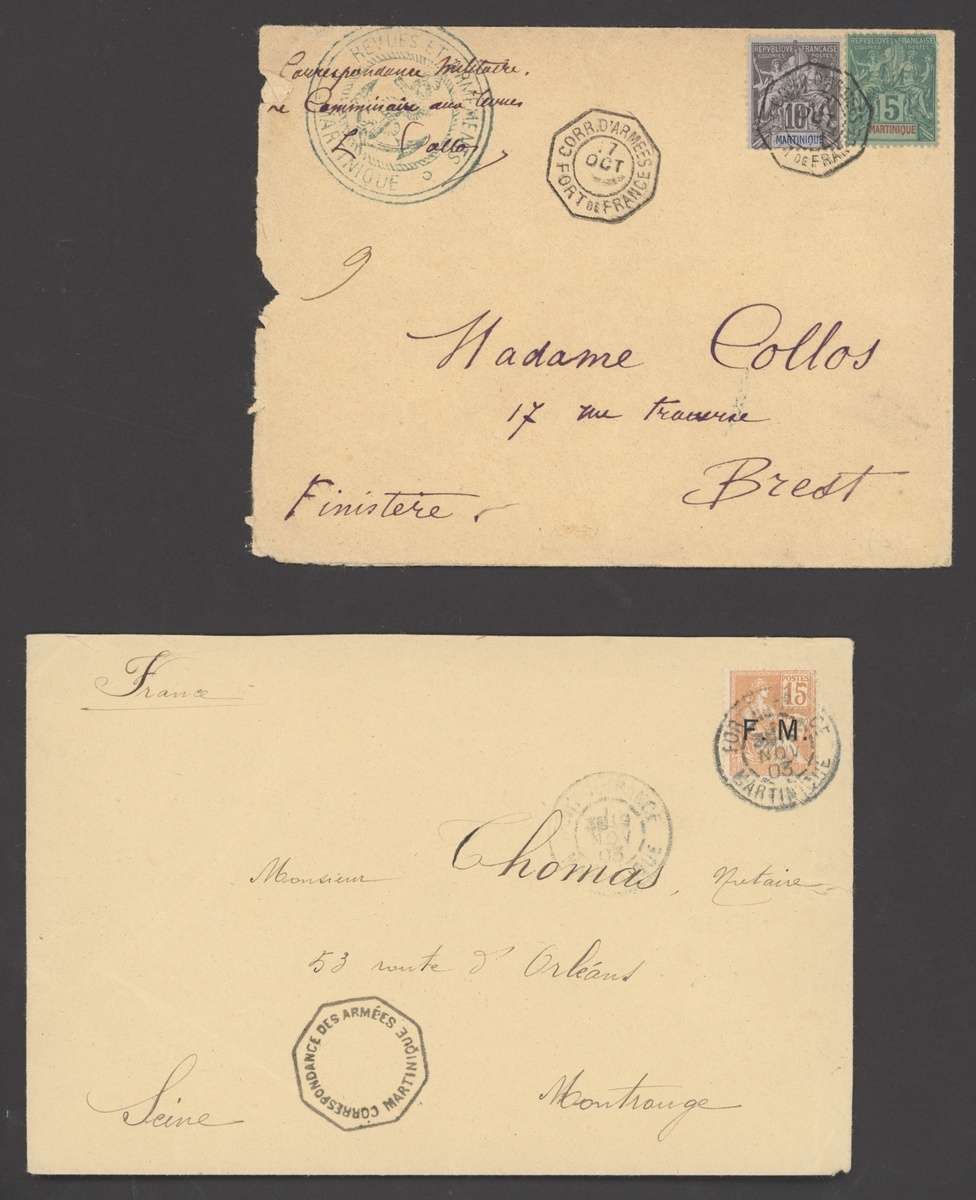 Correspondance Militaire.
Le Commissaire aux Revues
L. Collos
REVUES ET ARMEMENTS
MARTINIQUE
CORR. D'ARMÉES
17
OCT
FORT DE FRANCE
REPUBLIQUE FRANÇAISE
COLONIES POSTES
10
MARTINIQUE
REPUBLIQUE FRANÇAISE
COLONIES POSTES
5
MARTINIQUE
9
Madame Collos
17 rue traverse
Brest
Finistère.
France
POSTES
15
F. M.
FORT DE FRANCE
NOV
03
MARTINIQUE
FORT DE FRANCE
NOV
03
MARTINIQUE
Monsieur Thomas, Notaire
53 route d'Orléans
CORRESPONDANCE DES ARMÉES
MARTINIQUE
Montrouge
Seine